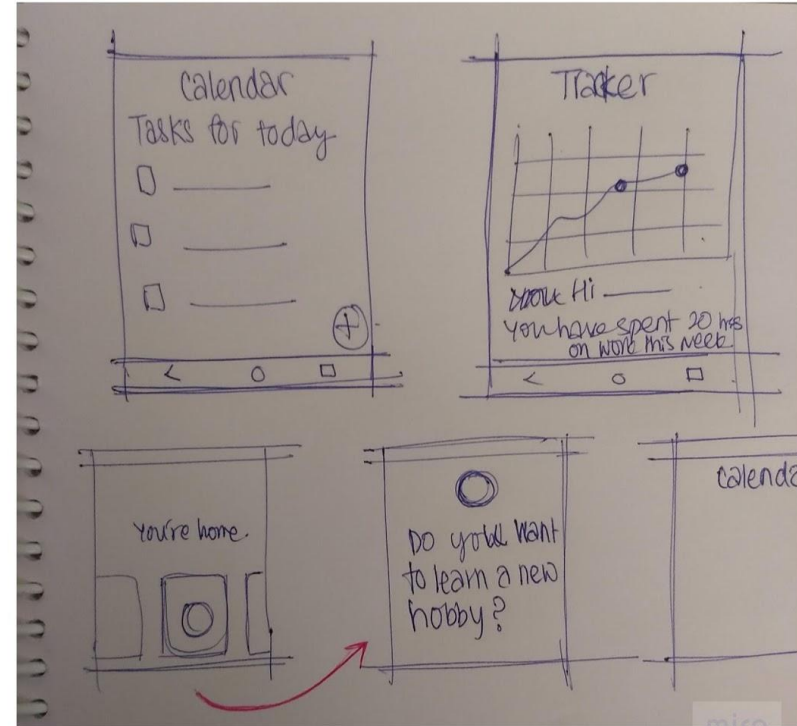 Calendar
Tasks for today
Tracker
Hi
You have spent 20 hrs
on work this week.
You're home.
Do you want
to learn a new
hobby?
Calenda
miro